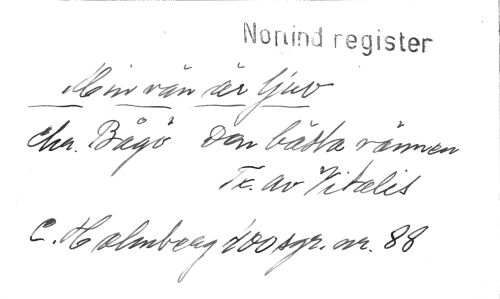 Nordind register
Min vän är ljuv
Chr. Bågö Den bästa vännen
Tr. av Vitalis
C. Holmberg 100 sgr. nr. 88